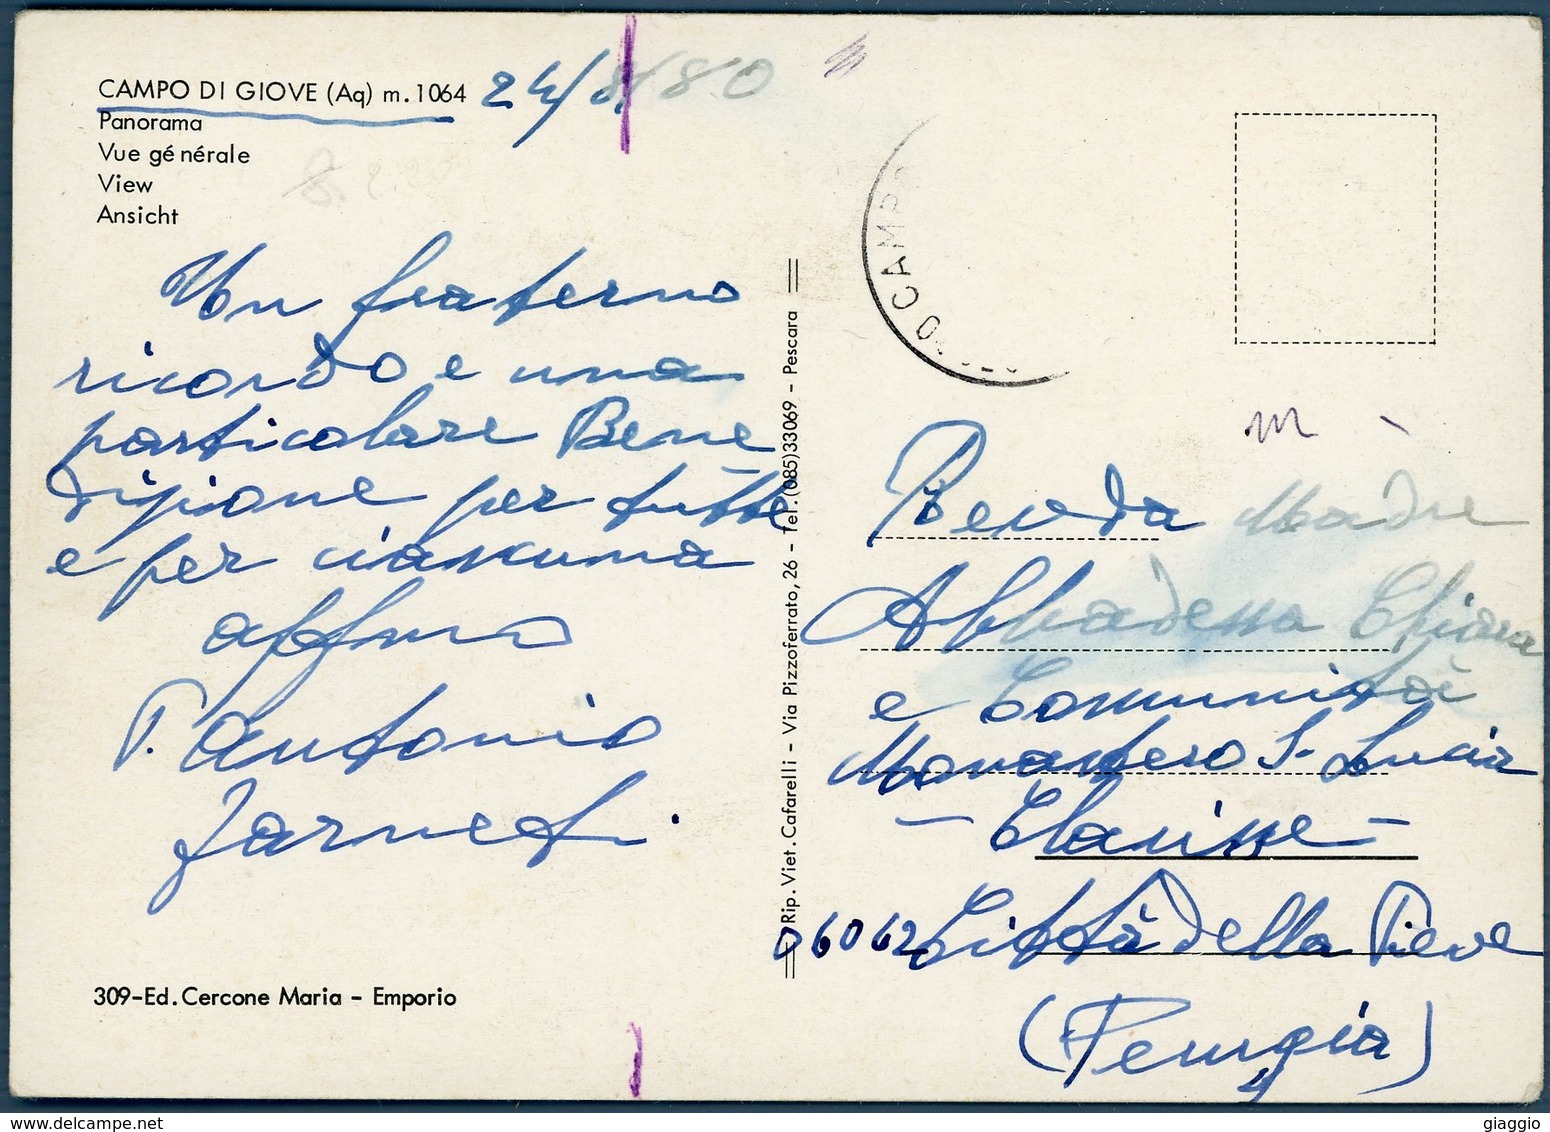 CAMPO DI GIOVE (Aq) m. 1064 24/8/80
Panorama
Vue générale
View
Ansicht
Un fraterno
ricordo e una
particolare Bene
dizione per tutte
e per ciascuna
affmo
P. Antonio
309-Ed. Cercone Maria - Emporio
Rip. Viet. Cafarelli - Via Pizzoferrato, 26 - Tel. (085)33069 - Pescara
CAMPO
Revda Madre
Abbadessa Chiara
e Comunità
Monastero S. Lucia
- Clarisse -
06062 Città della Pieve
(Perugia)
giaggio